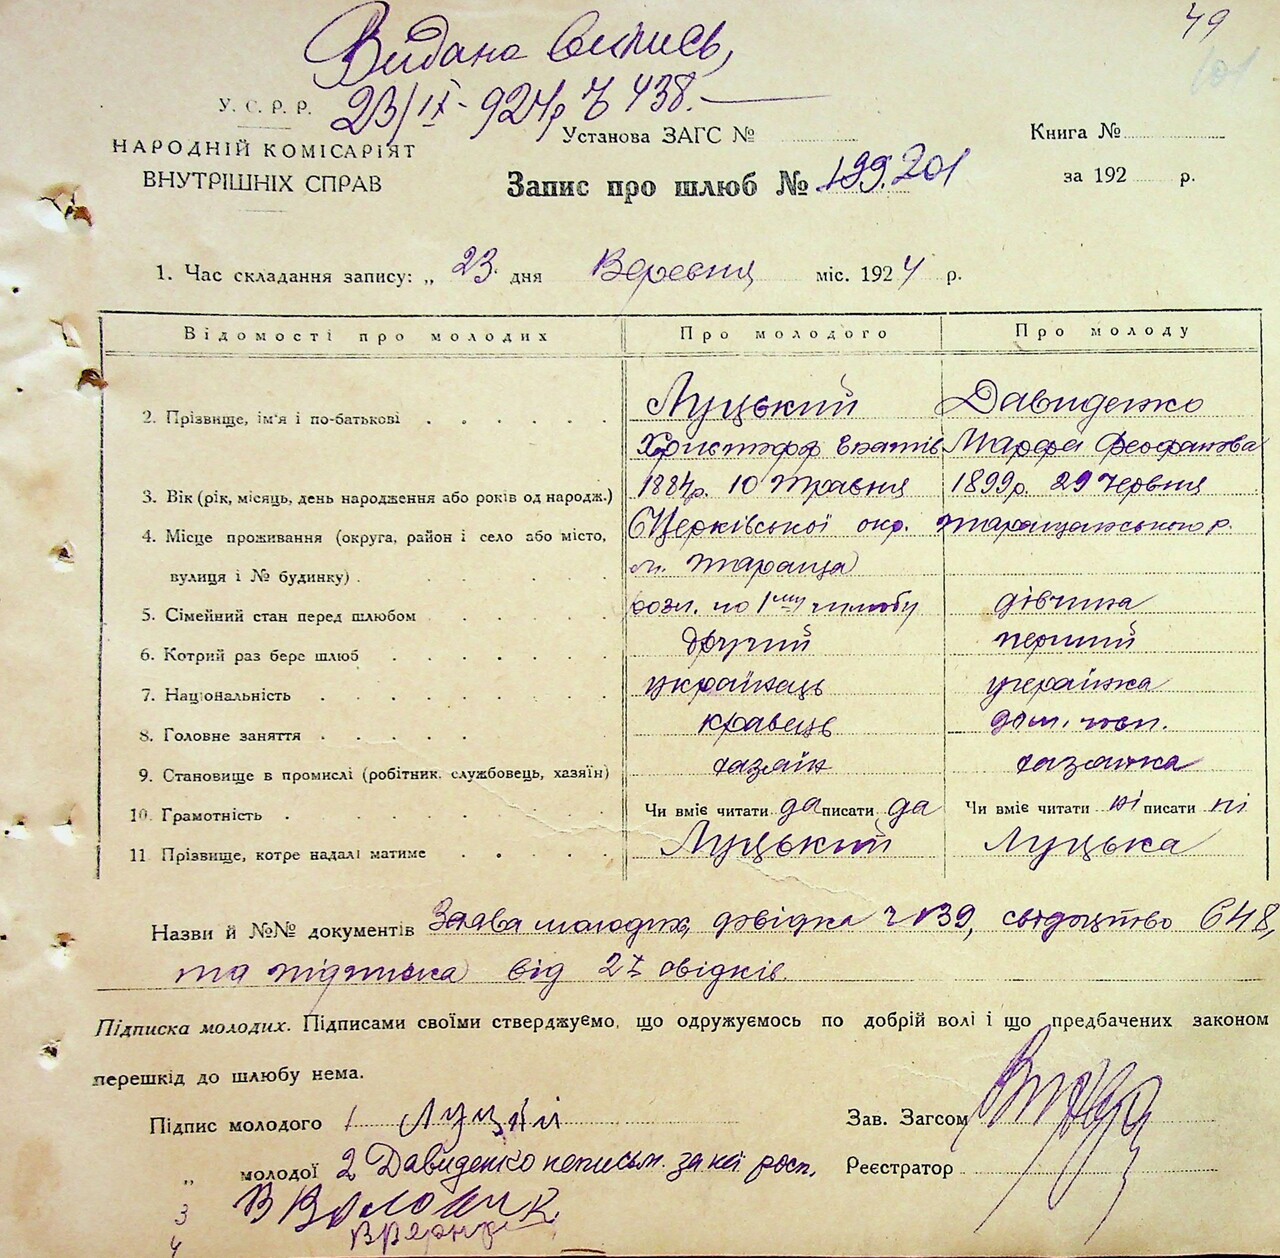 49
101
Видана випись,
23/IX - 924р Ч 438.
У. С. Р. Р.
НАРОДНІЙ КОМІСАРІЯТ
ВНУТРІШНІХ СПРАВ
Установа ЗАГС №
Книга №
Запис про шлюб № 199.201
за 192 р.
1. Час складання запису: „ 23 дня Вересня міс. 1924 р.
Відомості про молодих Про молодого Про молоду
2. Прізвище, ім'я і по-батькові Луцький Давиденко
Христофор Марфа Феофанова
3. Вік (рік, місяць, день народження або років од народж.) 1884р. 10 травня 1899р. 29 червня
4. Місце проживання (округа, район і село або місто, БЦерківської окр. Таращанського р.
вулиця і № будинку) м. Тараща
5. Сімейний стан перед шлюбом розл. по 1му шлюбу дівчина
6. Котрий раз бере шлюб другий перший
7. Національність українець українка
8. Головне заняття кравець дом. госп.
9. Становище в промислі (робітник, службовець, хазяїн) хазяїн хазяйка
10. Грамотність Чи вміє читати да писати да Чи вміє читати ні писати ні
11 Прізвище, котре надалі матиме Луцький Луцька
Назви й №№ документів Заява молодих, довідка Ч 139, свідоцтво 648,
та підписка від 2х свідків.
Підписка молодих. Підписами своїми стверджуємо, що одружуємось по добрій волі і що предбачених законом
перешкід до шлюбу нема.
Підпис молодого 1 Луцкій Зав. Загсом
„ молодої 2 Давиденко неписьм. за неї росп. Реєстратор
3 В Волошик
4